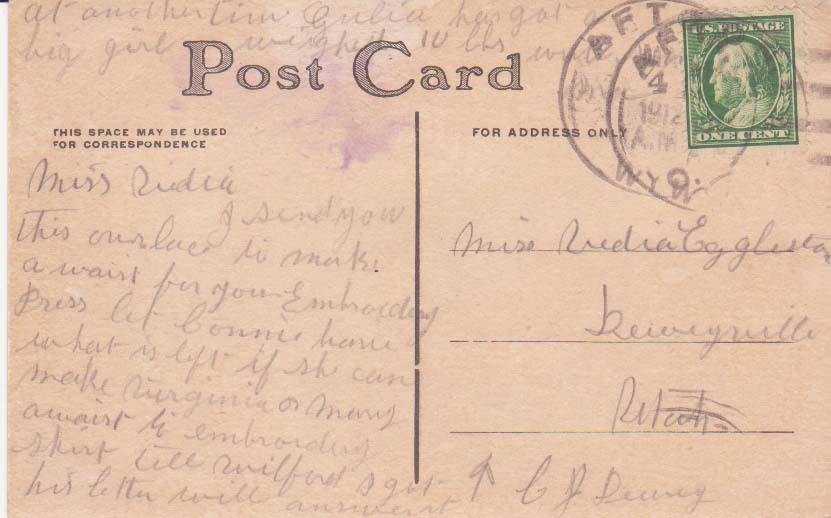 at another tim Eulia has got a
big girl weighed 10 lbs
Post Card
THIS SPACE MAY BE USED
FOR CORRESPONDENCE
FOR ADDRESS ONLY
AFTO
4
1912
A.M.
WYO.
U.S. POSTAGE
ONE CENT
Miss Vedia
I send you
this lace to make
a waist for your Embroidery
Dress let Connie have
what is left if she can
make Virginia or Mary
a waist to embroidery
skirt tell Wilford I got
his letter will answer it
Miss Vedia Eggleston
Deweyville
Utah
C J Dewey